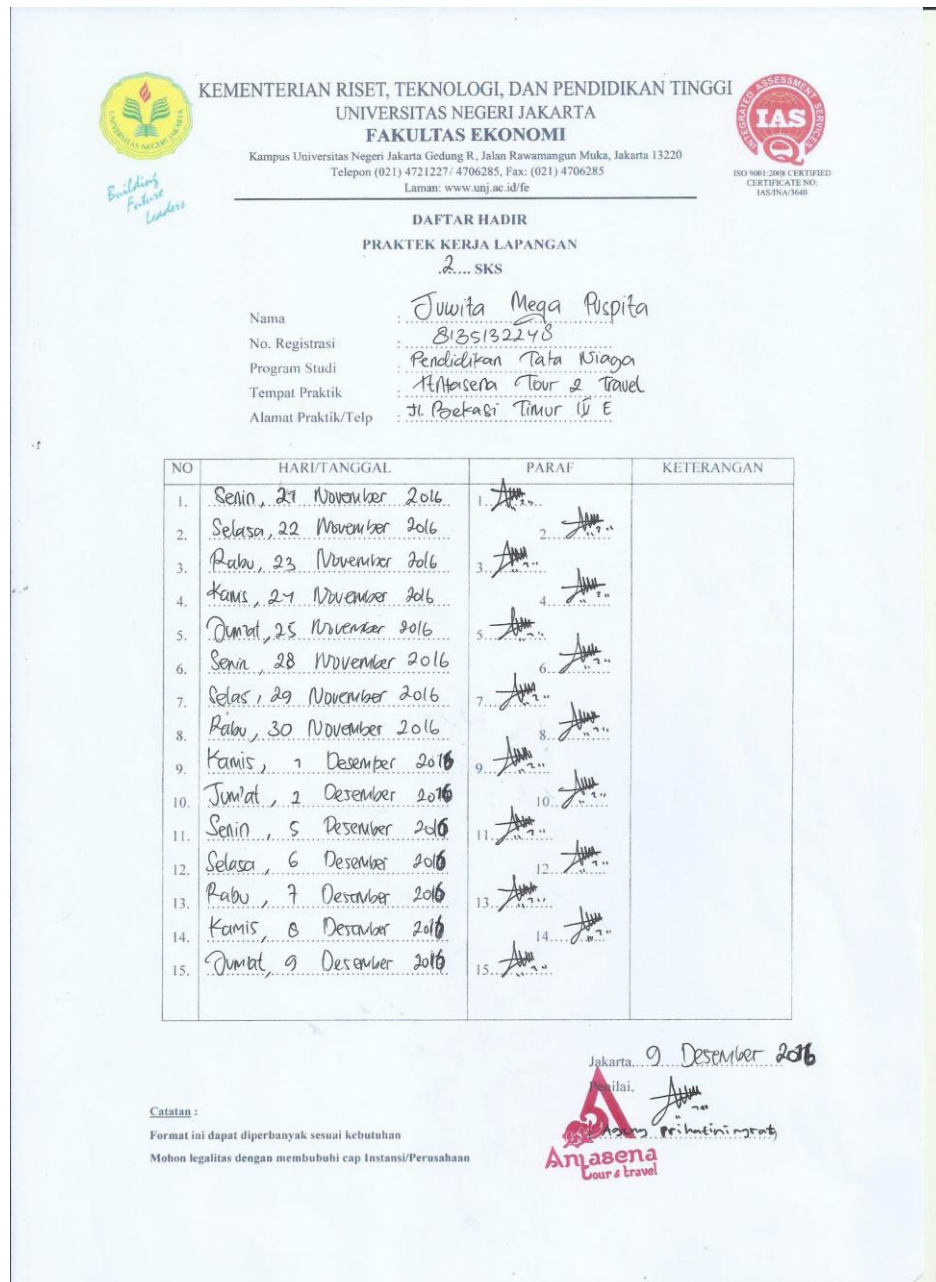 KEMENTERIAN RISET, TEKNOLOGI, DAN PENDIDIKAN TINGGI
UNIVERSITAS NEGERI JAKARTA
FAKULTAS EKONOMI
Kampus Universitas Negeri Jakarta Gedung R, Jalan Rawamangun Muka, Jakarta 13220
Telepon (021) 4721227/ 4706285, Fax: (021) 4706285
Laman: www.unj.ac.id/fe
UNIVERSITAS NEGERI JAKARTA
Building
Future
Leaders
INTEGRATED ASSESSMENT SERVICES
IAS
ISO 9001:2008 CERTIFIED
CERTIFICATE NO:
IAS/INA/3640
DAFTAR HADIR
PRAKTEK KERJA LAPANGAN
2 SKS
Nama : Juwita Mega Puspita
No. Registrasi : 8135132248
Program Studi : Pendidikan Tata Niaga
Tempat Praktik : Antasena Tour & Travel
Alamat Praktik/Telp : Jl. Bekasi Timur IV E
NO HARI/TANGGAL PARAF KETERANGAN
1. Senin, 21 November 2016 1.
2. Selasa, 22 November 2016 2.
3. Rabu, 23 November 2016 3.
4. Kamis, 24 November 2016 4.
5. Jum'at, 25 November 2016 5.
6. Senin, 28 November 2016 6.
7. Selas, 29 November 2016 7.
8. Rabu, 30 November 2016 8.
9. Kamis, 1 Desember 2016 9.
10. Jum'at, 2 Desember 2016 10.
11. Senin, 5 Desember 2016 11.
12. Selasa, 6 Desember 2016 12.
13. Rabu, 7 Desember 2016 13.
14. Kamis, 8 Desember 2016 14.
15. Jum'at, 9 Desember 2016 15.
Jakarta, 9 Desember 2016
Penilai,
Agung Prihatiningrat
Antasena
tour & travel
Catatan :
Format ini dapat diperbanyak sesuai kebutuhan
Mohon legalitas dengan membubuhi cap Instansi/Perusahaan